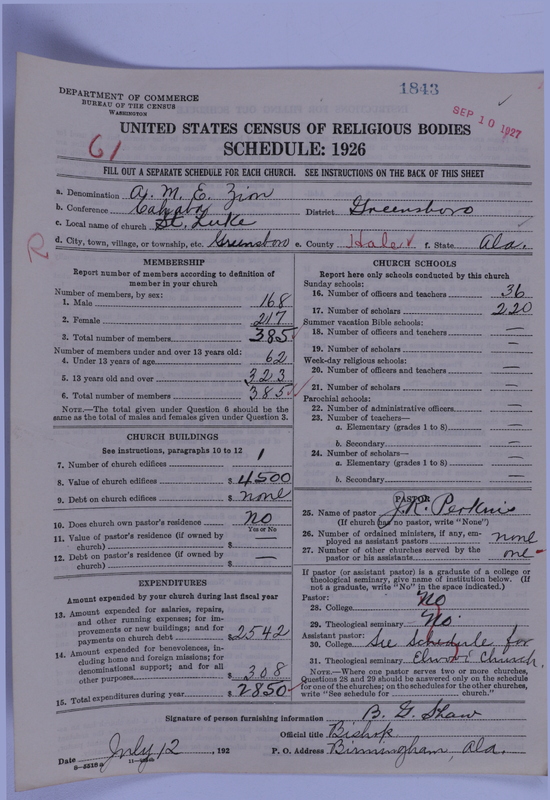 1843
DEPARTMENT OF COMMERCE
BUREAU OF THE CENSUS
WASHINGTON
SEP 10 1927
UNITED STATES CENSUS OF RELIGIOUS BODIES
61
SCHEDULE: 1926
FILL OUT A SEPARATE SCHEDULE FOR EACH CHURCH. SEE INSTRUCTIONS ON THE BACK OF THIS SHEET
a. Denomination A. M. E. Zion
b. Conference Cahaba District Greensboro
c. Local name of church St. Luke
R
d. City, town, village, or township, etc. Greensboro e. County Hale f. State Ala.
MEMBERSHIP
Report number of members according to definition of
member in your church
Number of members, by sex:
1. Male 168
2. Female 217
3. Total number of members 385
Number of members under and over 13 years old:
4. Under 13 years of age 62
5. 13 years old and over 323
6. Total number of members 385
NOTE.—The total given under Question 6 should be the
same as the total of males and females given under Question 3.
CHURCH BUILDINGS
See instructions, paragraphs 10 to 12
7. Number of church edifices 1
8. Value of church edifices $ 4500
9. Debt on church edifices $ none
10. Does church own pastor's residence No
Yes or No
11. Value of pastor's residence (if owned by
church) $ —
12. Debt on pastor's residence (if owned by
church) $ —
EXPENDITURES
Amount expended by your church during last fiscal year
13. Amount expended for salaries, repairs,
and other running expenses; for im-
provements or new buildings; and for
payments on church debt $ 2542
14. Amount expended for benevolences, in-
cluding home and foreign missions; for
denominational support; and for all
other purposes $ 308
15. Total expenditures during year $ 2850
CHURCH SCHOOLS
Report here only schools conducted by this church
Sunday schools:
16. Number of officers and teachers 36
17. Number of scholars 220
Summer vacation Bible schools:
18. Number of officers and teachers —
19. Number of scholars —
Week-day religious schools:
20. Number of officers and teachers —
21. Number of scholars —
Parochial schools:
22. Number of administrative officers —
23. Number of teachers—
a. Elementary (grades 1 to 8) —
b. Secondary —
24. Number of scholars—
a. Elementary (grades 1 to 8) —
b. Secondary —
PASTOR
25. Name of pastor J. R. Perkins
(If church has no pastor, write "None")
26. Number of ordained ministers, if any, em-
ployed as assistant pastors none
27. Number of other churches served by the
pastor or his assistants one
If pastor (or assistant pastor) is a graduate of a college or
theological seminary, give name of institution below. (If
not a graduate, write "No" in the space indicated.)
Pastor:
28. College No
29. Theological seminary No
Assistant pastor:
30. College See Schedule for
31. Theological seminary Church
NOTE.—Where one pastor serves two or more churches,
Questions 28 and 29 should be answered only on the schedule
for one of the churches; on the schedules for the other churches,
write "See schedule for church."
Signature of person furnishing information B. G. Shaw
Official title Bishop
Date July 12, 192 P. O. Address Birmingham, Ala.